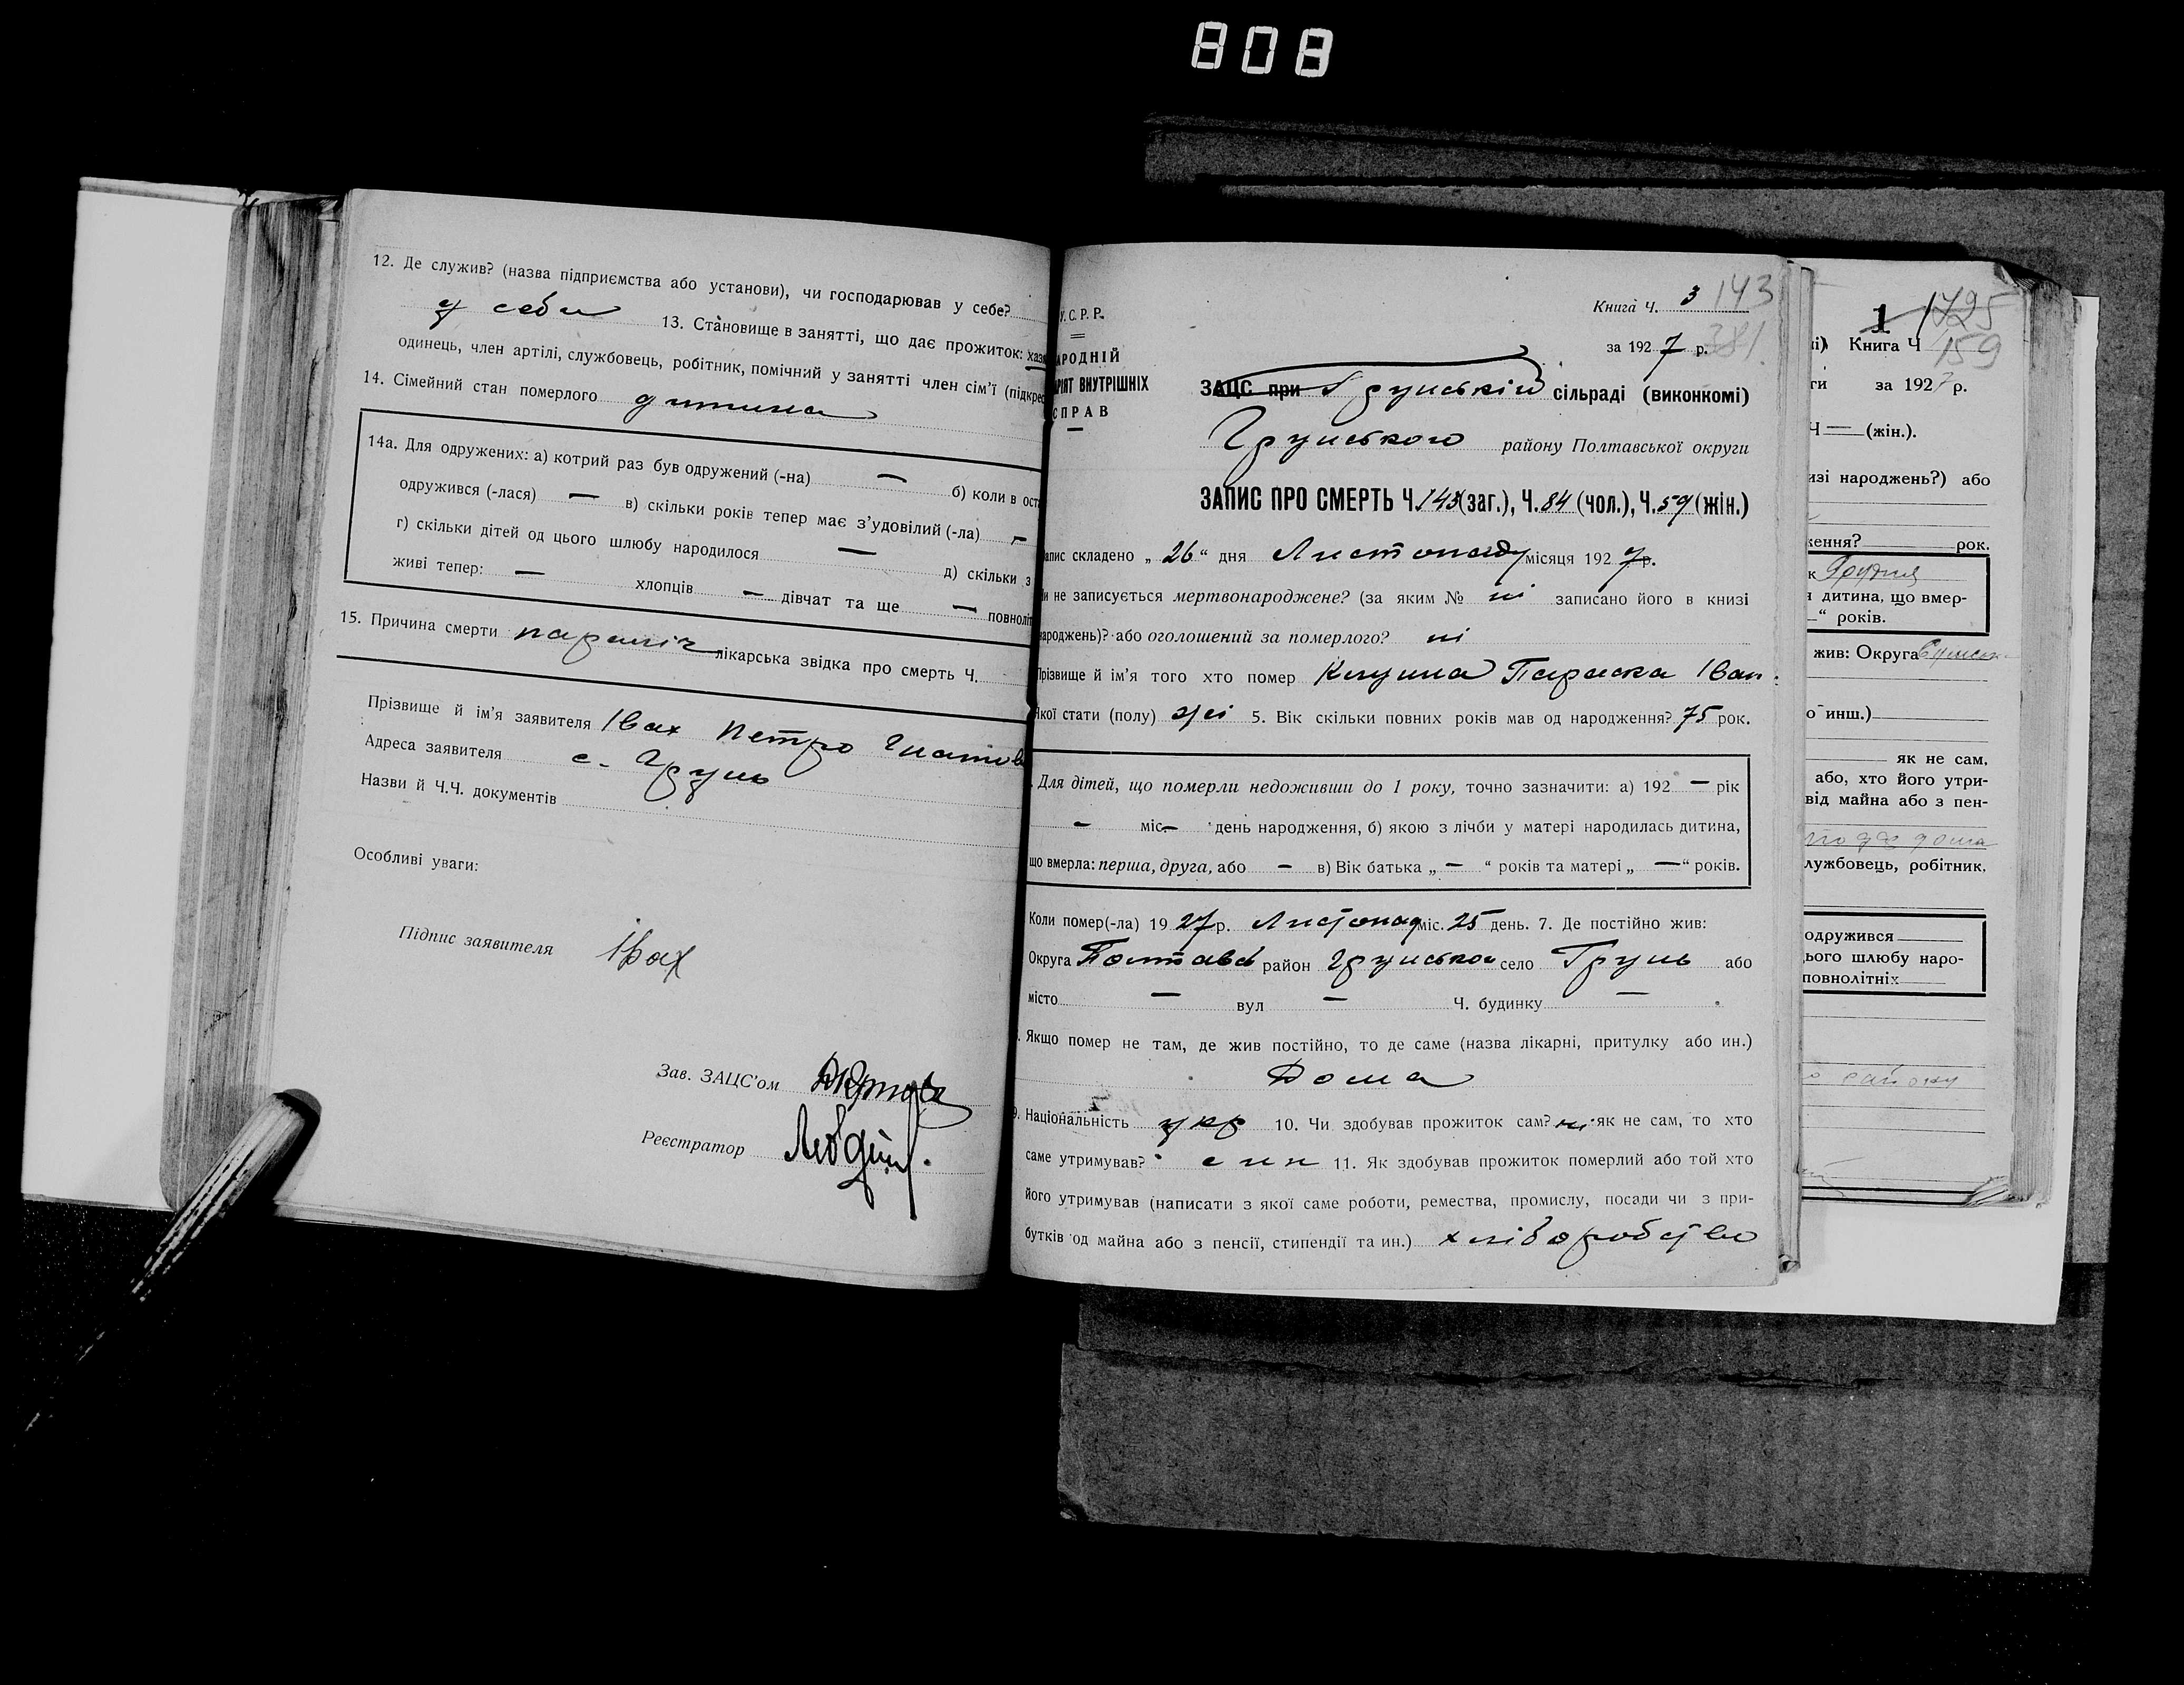 808
12. Де служив? (назва підприємства або установи), чи господарював у себе?
у себе 13. Становище в занятті, що дає прожиток: хаз
одинець, член артілі, службовець, робітник, помічний у занятті член сім'ї (підкрес
14. Сімейний стан померлого дитина
14а. Для одружених: а) котрий раз був одружений (-на) — б) коли в ост
одружився (-лася) — в) скільки років тепер має з'удовілий (-ла) —
г) скільки дітей од цього шлюбу народилося — д) скільки з
живі тепер: — хлопців — дівчат та ще — повноліт
15. Причина смерти параліч лікарська звідка про смерть Ч.
Прізвище й ім'я заявителя Івах Петро Гнатов
Адреса заявителя с. Грунь
Назви й Ч.Ч. документів
Особливі уваги:
Підпис заявителя Івах
Зав. ЗАЦС'ом
Реєстратор
У.С.Р.Р.
АРОДНІЙ
РІЯТ ВНУТРІШНІХ
СПРАВ
Книга Ч. 3 143
за 1927 р. 381
ЗАЦС при Грунській сільраді (виконкомі)
Грунського району Полтавської округи
ЗАПИС ПРО СМЕРТЬ Ч. 143 (заг.), Ч. 84 (чол.), Ч. 59 (жін.)
апис складено „ 26 “ дня Листопаду місяця 1927 р.
и не записується мертвонароджене? (за яким № ні записано його в книзі
народжень)? або оголошений за померлого? ні
Прізвище й ім'я того хто помер Параска Іван.
Якої стати (полу) жі 5. Вік скільки повних років мав од народження? 75 рок.
Для дітей, що померли недоживши до 1 року, точно зазначити: а) 192 — рік
— міс — день народження, б) якою з лічби у матері народилась дитина,
що вмерла: перша, друга, або — в) Вік батька „ — “ років та матері „ — “ років.
Коли помер(-ла) 1927 р. Листопад міс. 25 день. 7. Де постійно жив:
Округа Полтавсь район Грунської село Грунь або
місто — вул — Ч. будинку —
. Якщо помер не там, де жив постійно, то де саме (назва лікарні, притулку або ин.)
Дома
9. Національність укр 10. Чи здобував прожиток сам? ні як не сам, то хто
саме утримував? син 11. Як здобував прожиток померлий або той хто
його утримував (написати з якої саме роботи, ремества, промислу, посади чи з при-
бутків од майна або з пенсії, стипендії та ин.) хліборобство
1 1725
і) Книга Ч 159
ги за 1927 р.
Ч — (жін.).
изі народжень?) або
ження? рок.
к Грудня
я дитина, що вмер-
“ років.
жив: Округа
о инш.)
як не сам,
або, хто його утри-
від майна або з пен-
лужбовець, робітник,
одружився
ього шлюбу наро-
повнолітніх